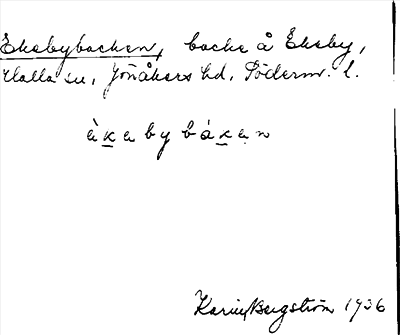 Ekebybacken, backe å Ekeby,
Halla sn, Jönåkers hd, Söderm. l.
ằḵebybáḵen
Karin Bergström 1936